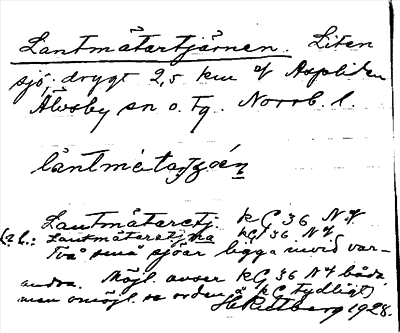 Lantmätartjärnen. Liten
sjö, drygt 2,5 km Aspliden
Älvsby sn o. tg. Norrb. l.
låntmetat
Lantmätaretj. kC 36 NV.
Lantmäteretj:na kC 36 NV
Två små sjöar ligga invid var-
andra. Möjl. avser kC 36 NV båda
men omöjl. se orden å kC tydligt
1928.